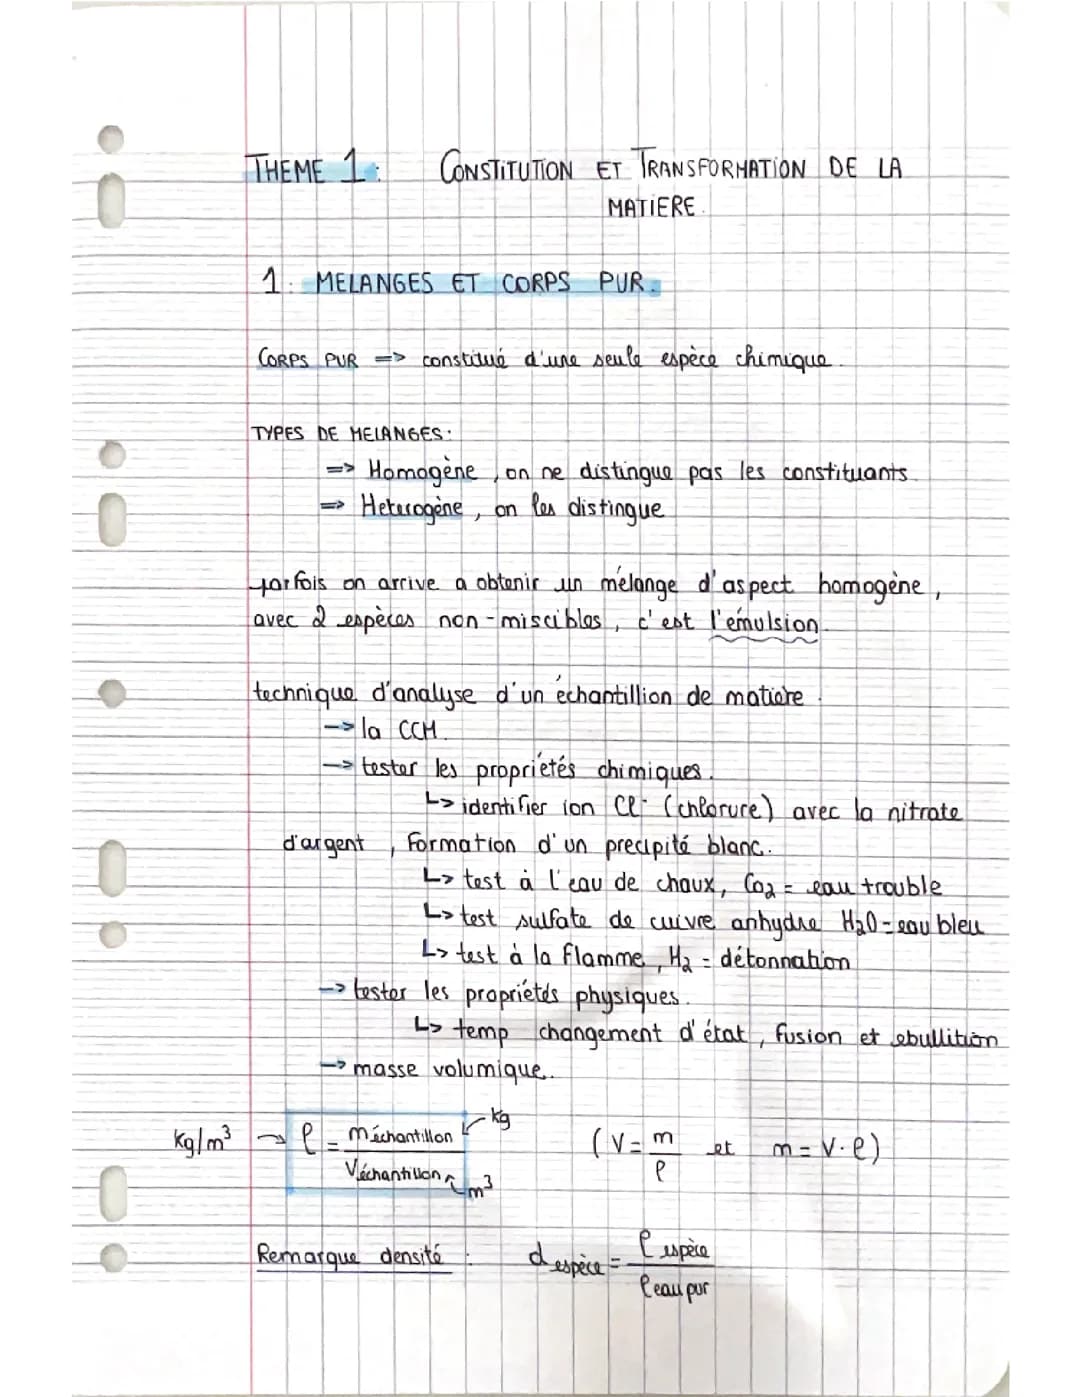 THEME 1 : CONSTITUTION ET TRANSFORMATION DE LA
MATIERE.
1. MELANGES ET CORPS PUR.
CORPS PUR => constitué d'une seule espèce chimique.
TYPES DE MELANGES:
=> Homogène, on ne distingue pas les constituants.
=> Heterogène, on les distingue
parfois on arrive a obtenir un mélange d'aspect homogène,
avec 2 espèces non-miscibles, c'est l'émulsion.
technique d'analyse d'un échantillion de matiere.
-> la CCM.
-> tester les propriétés chimiques.
↳ identifier ion Cl⁻ (chlorure) avec la nitrate
d'argent, Formation d'un precipité blanc.
↳ test à l'eau de chaux, Co₂ = eau trouble
↳ test sulfate de cuivre anhydre H₂O = eau bleu
↳ test à la flamme, H₂ = détonnation
-> tester les propriétés physiques.
↳ temp changement d'état, fusion et ebullition
-> masse volumique.
kg/m³ → ρ = méchantillon / Véchantillon ← kg m³ (V = m/ρ et m = V·ρ)
Remarque densité : d espèce = ρ espèce / ρ eau pur